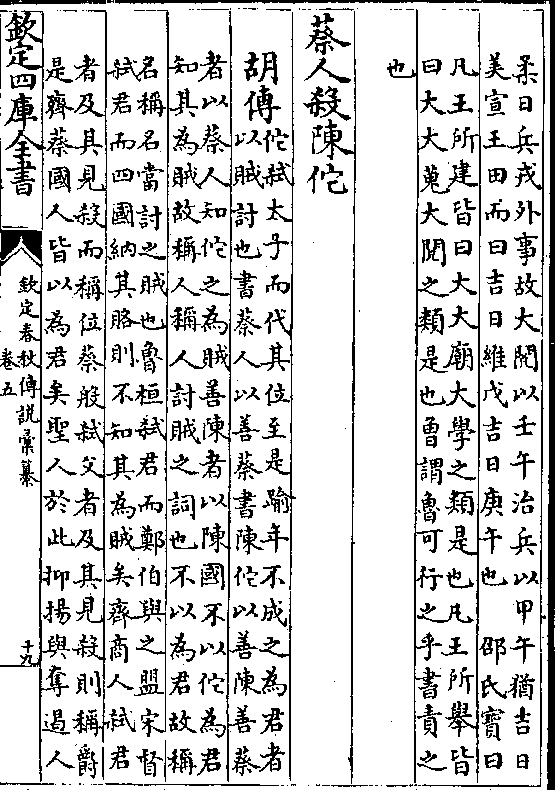 柔日兵戎外事故大閱以壬午治兵以甲午猶吉日
美宣王田而曰吉日維戊吉日庚午也　邵氏寶曰
凡王所建皆曰大大廟大學之類是也凡王所舉皆
曰大大蒐大閱之類是也曾謂魯可行之乎書責之
也
蔡人殺陳佗
胡傳佗弑太子而代其位至是踰年不成之為君者
以賊討也書蔡人以善蔡書陳佗以善陳善蔡
者以蔡人知佗之為賊善陳者以陳國不以佗為君
知其為賊故稱人稱人討賊之詞也不以為君故稱
名稱名當討之賊也魯桓弑君而鄭伯與之盟宋督
弑君而四國納其賂則不知其為賊矣齊商人弑君
者及其見殺而稱位蔡般弑父者及其見殺則稱爵
是齊蔡國人皆以為君矣聖人於此抑揚與奪遏人
欽定四庫全書
欽定春秋傳說彙纂
卷五
十九